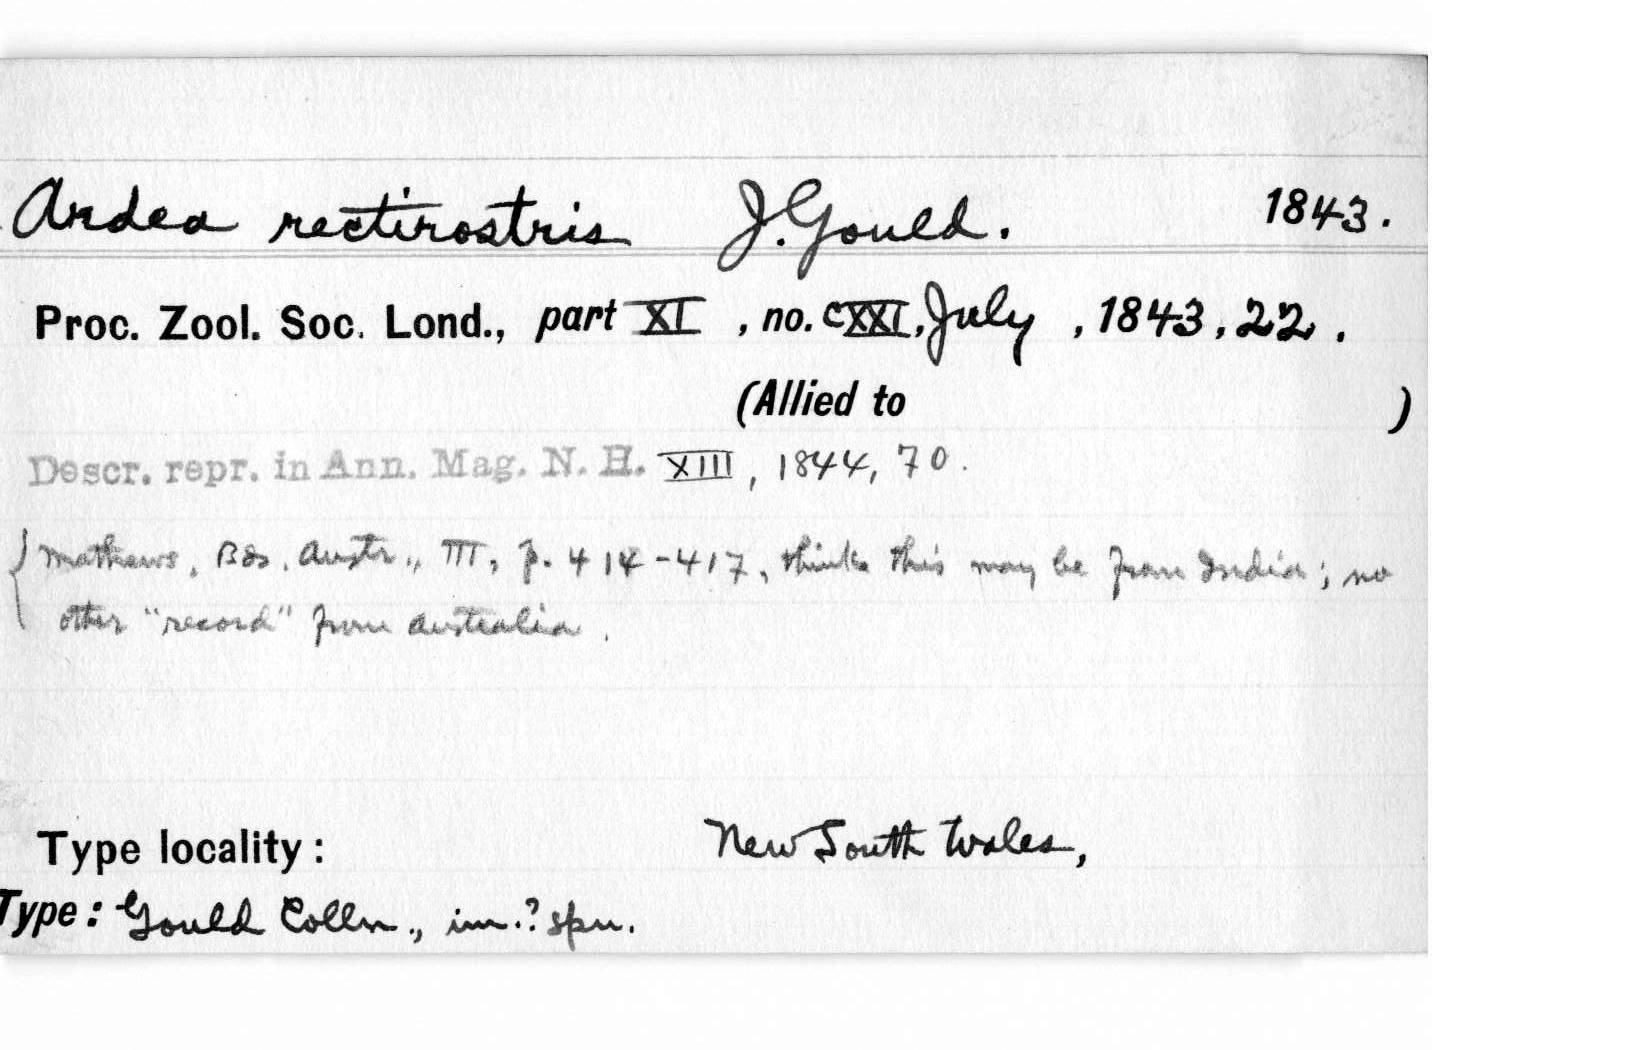 Ardea rectirostris J. Gould. 1843.
Proc. Zool. Soc. Lond., part XI, no. CXXI, July, 1843, 22.
(Allied to )
Descr. repr. in Ann. Mag. N. H. XIII, 1844, 70.
{Mathews, Bds. Austr., III, p. 414-417, thinks this may be from India; no
other "record" from Australia.
Type locality: New South Wales,
Type: Gould Colln., im.? spn.